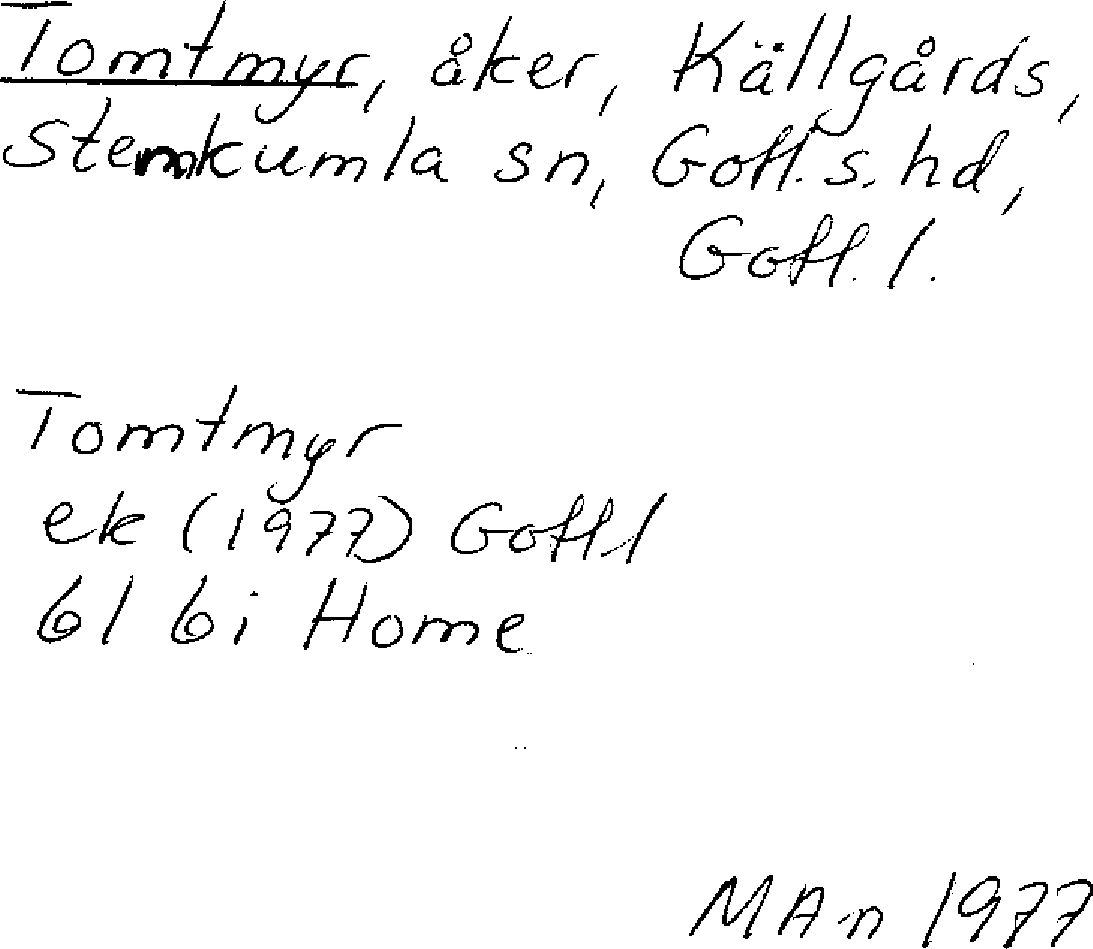 Tomtmyr, åker, Källgårds,
Stenkumla sn, Gotl. s. hd,
Gotl. l.
Tomtmyr
ek (1977) Gotl l
6l 6i Home
MAn 1977